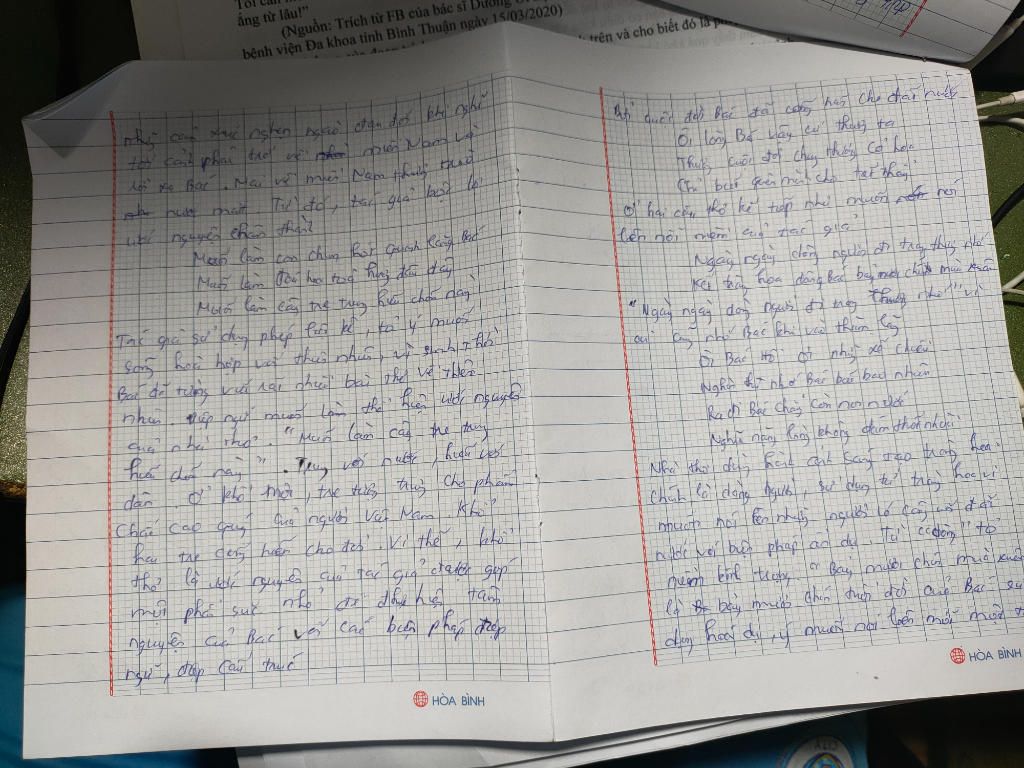 Tôi cảm
ẳng từ lâu!"
(Nguồn: Trích từ FB của bác sĩ Dương
bệnh viện Đa khoa tỉnh Bình Thuận ngày 15/03/2020)
trên và cho biết đó là
những cảm xúc nghẹn ngào đau đớn khi nghĩ
tới cảnh phải trở về miền Nam và
rời xa Bác. Mai về miền Nam thương trào
nước mắt. Từ đó, tác giả bộc lộ
ước nguyện chân thần
Muốn làm con chim hót quanh lăng Bác
Muốn làm đóa hoa toả hương đâu đây
Muốn làm cây tre trung hiếu chốn này
Tác giả sử dụng phép liệt kê, tỏ ý muốn
sống hoài hợp với thiên nhiên, vì
Bác đi từng với rất nhiều bài thơ về thiên
nhiên. Điệp ngữ muốn làm thể hiện ước nguyện
của nhà thơ. "Muốn làm cây tre trung
hiếu chốn này". Trung với nước, hiếu với
dân. Ở khổ một, tre tượng trưng cho phẩm
chất cao quý của người Việt Nam. Khổ
hai tre cống hiến cho đời. Vì thế, khổ
thơ là ước nguyện của tác giả được góp
một phần sức nhỏ để thực hiện tâm
nguyện của Bác với các biện pháp điệp
ngữ, điệp cấu trúc
HÒA BÌNH
cuộc đời Bác đã cống hiến cho đất nước
Ôi lòng Bác vậy cứ thương ta
Thương cuộc đời chung thương cỏ hoa
Chỉ biết quên mình cho hết thảy
Ở hai câu thơ kế tiếp như muốn nói
lên nỗi niềm của tác giả
Ngày ngày dòng người đi trong thương nhớ
Kết tràng hoa dâng bảy mươi chín mùa xuân
"Ngày ngày dòng người đi trong thương nhớ" vì
ai cũng nhớ Bác khi vào thăm lăng
Ôi Bác Hồ ơi những xế chiều
Nghìn thu nhớ Bác biết bao nhiêu
Ra đi Bác chẳng còn non nước
Nghĩa nặng lòng không dám khóc nhiều
Nhà thơ dùng hình ảnh sáng tạo tràng hoa
chính là dòng người, sử dụng từ tràng hoa vì
muốn nói lên những người có công với đất
nước với biện pháp ẩn dụ. Từ "dòng" tô
bình tượng. "Bảy mươi chín mùa xuân
là bảy mươi chín tuổi đời của Bác sử
dụng hoán dụ, ý muốn nói lên mỗi một
HÒA BÌNH